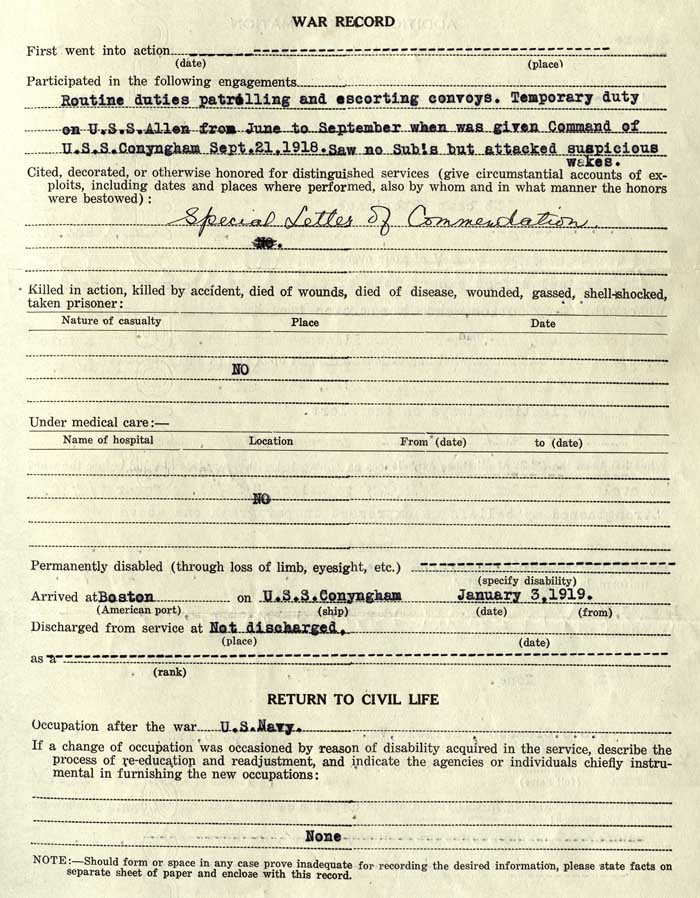 WAR RECORD
First went into action
(date) (place)
Participated in the following engagements
Routine duties patrolling and escorting convoys. Temporary duty
on U.S.S.Allen from June to September when was given Command of
U.S.S.Conyngham Sept.21,1918.Saw no Sub's but attacked suspicious
wakes.
Cited, decorated, or otherwise honored for distinguished services (give circumstantial accounts of ex-
ploits, including dates and places where performed, also by whom and in what manner the honors
were bestowed) :
Special Letter of Commendation.
NO.
Killed in action, killed by accident, died of wounds, died of disease, wounded, gassed, shell-shocked,
taken prisoner:
Nature of casualty Place Date
NO
Under medical care:—
Name of hospital Location From (date) to (date)
NO
Permanently disabled (through loss of limb, eyesight, etc.)
(specify disability)
Arrived at Boston on U.S.S.Conyngham January 3,1919.
(American port) (ship) (date) (from)
Discharged from service at Not discharged.
(place) (date)
as a
(rank)
RETURN TO CIVIL LIFE
Occupation after the war U.S.Navy.
If a change of occupation was occasioned by reason of disability acquired in the service, describe the
process of re-education and readjustment, and indicate the agencies or individuals chiefly instru-
mental in furnishing the new occupations:
None
NOTE:—Should form or space in any case prove inadequate for recording the desired information, please state facts on
separate sheet of paper and enclose with this record.